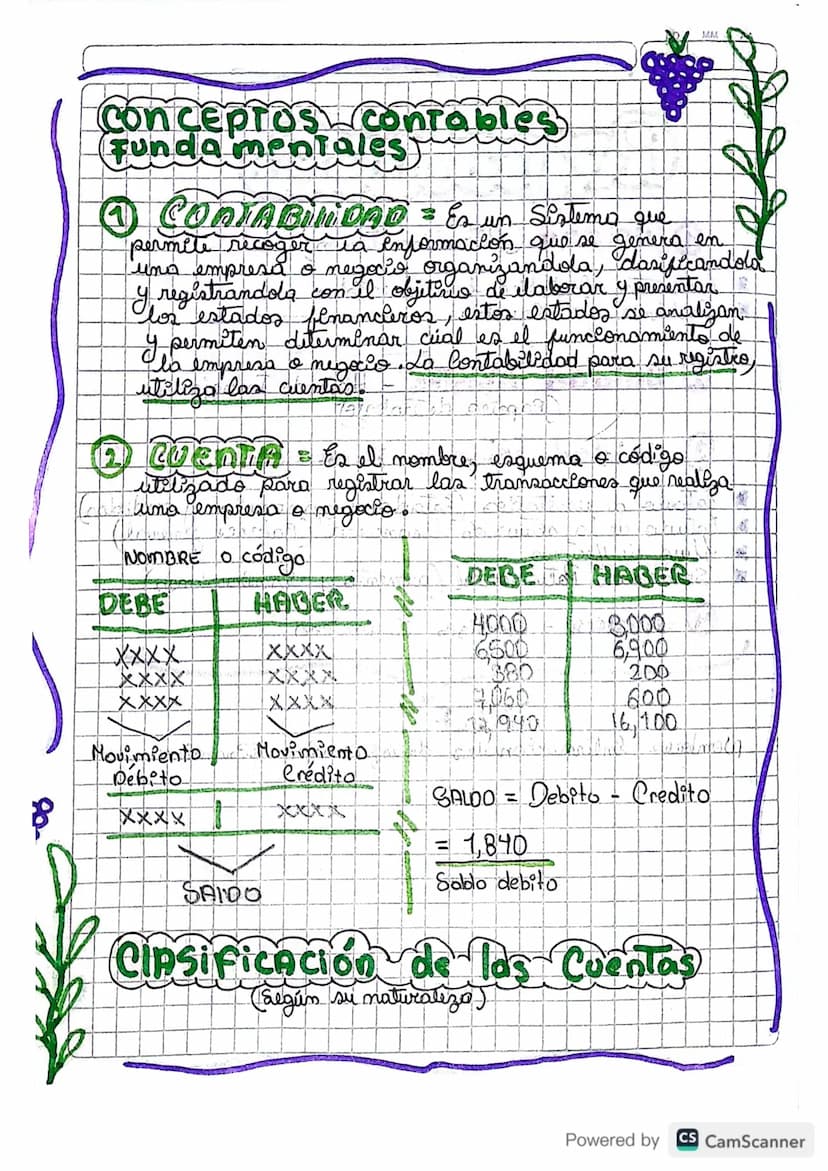 MM
CONCEPTOS contables
Fundamentales
① CONTABILIDAD = Es un Sistema que
permite recoger la información que se genera en
una empresa o negocio organizandola, clasificandola
y registrandola con el objetivo de elaborar y presentar
los estados financieros, estos estados se analizan
y permiten determinar cúal es el funcionamiento de
la empresa o negocio. La Contabilidad para su registro,
utiliza las cuentas. -
② CUENTA = Es el nombre, esquema o código
utilizado para registrar las transacciones que realiza
una empresa o negocio.
NOMBRE o código
DEBE HABER
XXXX XXXX
XXXX XXXX
XXXX XXXX
Movimiento Movimiento
Débito Crédito
XXXX XXXX
SALDO
DEBE HABER
4000 8,000
6,500 6,900
380 200
7,060 600
16,100
SALDO = Debito - Credito
= 1,840
Saldo debito
Clasificación de las Cuentas
(Según su naturaleza)
Powered by CS CamScanner